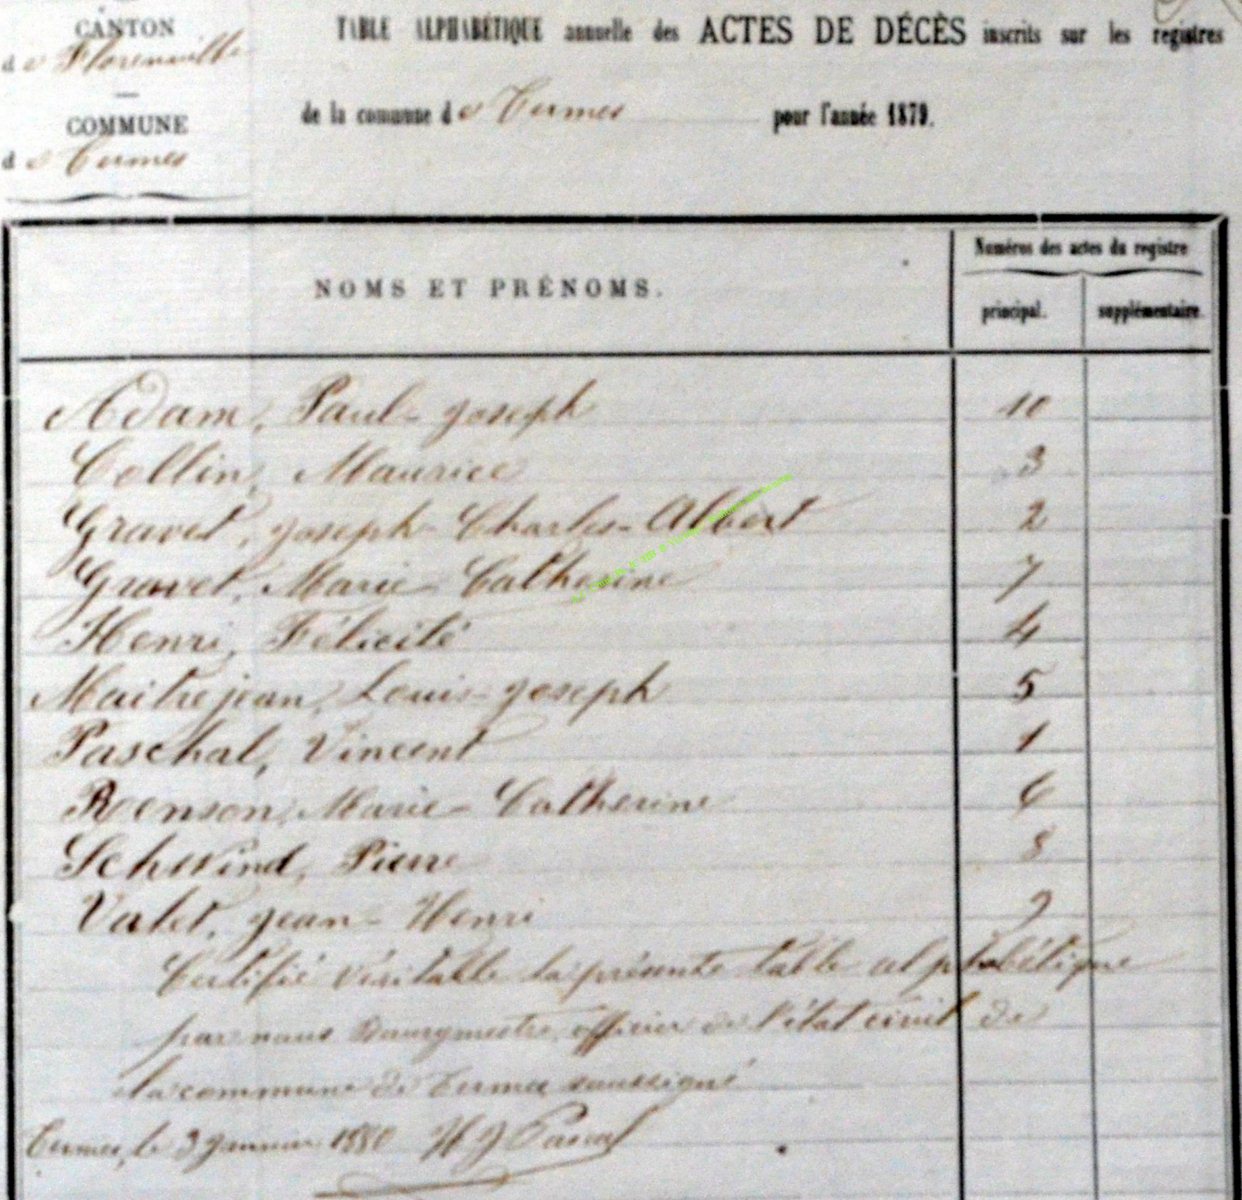 CANTON
de Florenville
COMMUNE
de Termes
TABLE ALPHABÉTIQUE annuelle des ACTES DE DÉCÈS inscrits sur les registres
de la commune de Termes pour l'année 1879.
NOMS ET PRÉNOMS.
Numéros des actes du registre
principal. supplémentaire.
Adam, Paul-joseph 10
Collin, Maurice 3
Gravet, joseph-Charles-Albert 2
Gravet, Marie-Catherine 7
Henri, Félicité 4
Maitrejean, Louis-joseph 5
Paschal, Vincent 1
Roenson, Marie-Catherine 6
Schwind, Pierre 8
Valet, jean-Henri 9
Certifié véritable la présente table alphabétique
par nous Bourgmestre, officier de l'état civil de
la commune de Termes soussigné
Termes, le 3 janvier 1880 H J Pascal